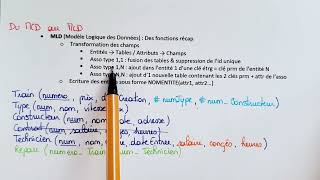 Du MCD au MLD
• MLD (Modèle Logique des Données) : Des fonctions récap
○ Transformation des champs
▪ Entités → Tables / Attributs → Champs
▪ Asso type 1,1 : fusion des tables & suppression de l'id unique
▪ Asso type 1,N : ajout dans l'entité 1 d'une clé étrg = clé prm de l'entité N
▪ Asso type N,N : ajout d'1 nouvelle table contenant les 2 clés prm + attr de l'asso
○ Ecriture des entités sous forme NOMENTITE(attr1, attr2...)
Train (numero, prix, dateCreation, # numType, # num_Constructeur)
Type (num, nom, vitesse)
Constructeur (num, nom, adresse)
Contrat (num, salaire, congés, heures)
Technicien (num, nom, date Entree, salaire, congés, heures)
Repare (numero_Train, num_Technicien)